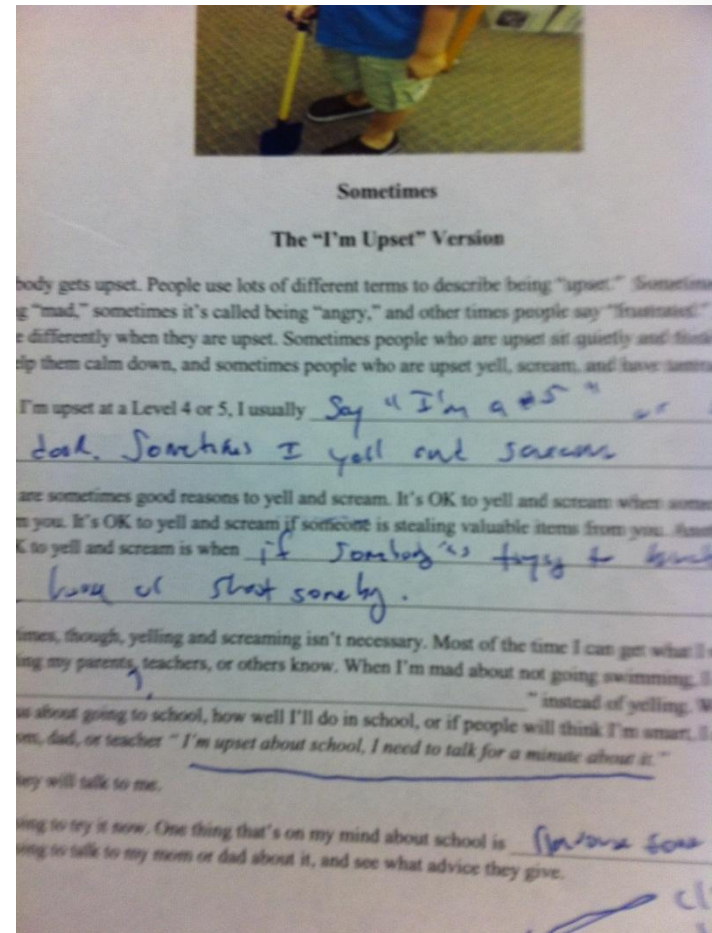 Sometimes
The “I’m Upset” Version
body gets upset. People use lots of different terms to describe being “upset.” Sometime
g “mad,” sometimes it’s called being “angry,” and other times people say “frustrated.”
e differently when they are upset. Sometimes people who are upset sit quietly and
lp them calm down, and sometimes people who are upset yell, scream, and have
I’m upset at a Level 4 or 5, I usually Say “I’m a #5” or
door. Sometimes I yell and scream
are sometimes good reasons to yell and scream. It’s OK to yell and scream when
m you. It’s OK to yell and scream if someone is stealing valuable items from you.
K to yell and scream is when if Somebody is trying to
or shoot someby.
times, though, yelling and screaming isn’t necessary. Most of the time I can get what I
ing my parents, teachers, or others know. When I’m mad about not going swimming, I
” instead of yelling. W
us about going to school, how well I’ll do in school, or if people will think I’m smart, I
om, dad, or teacher “I’m upset about school, I need to talk for a minute about it.”
hey will talk to me.
oing to try it now. One thing that’s on my mind about school is
oing to talk to my mom or dad about it, and see what advice they give.